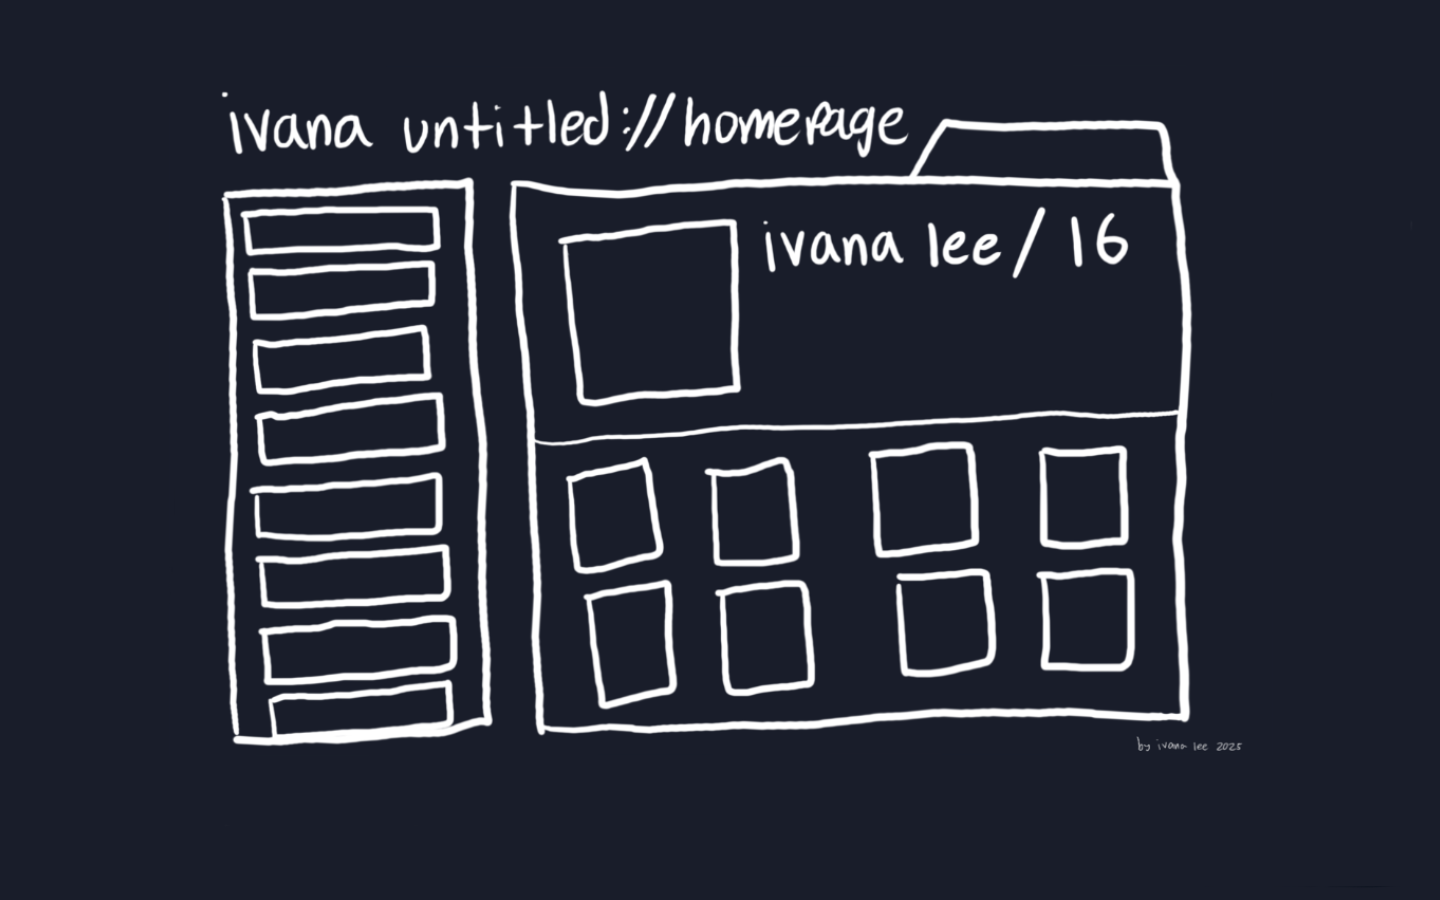 ivana untitled://homepage
ivana lee / 16
by ivana lee 2025